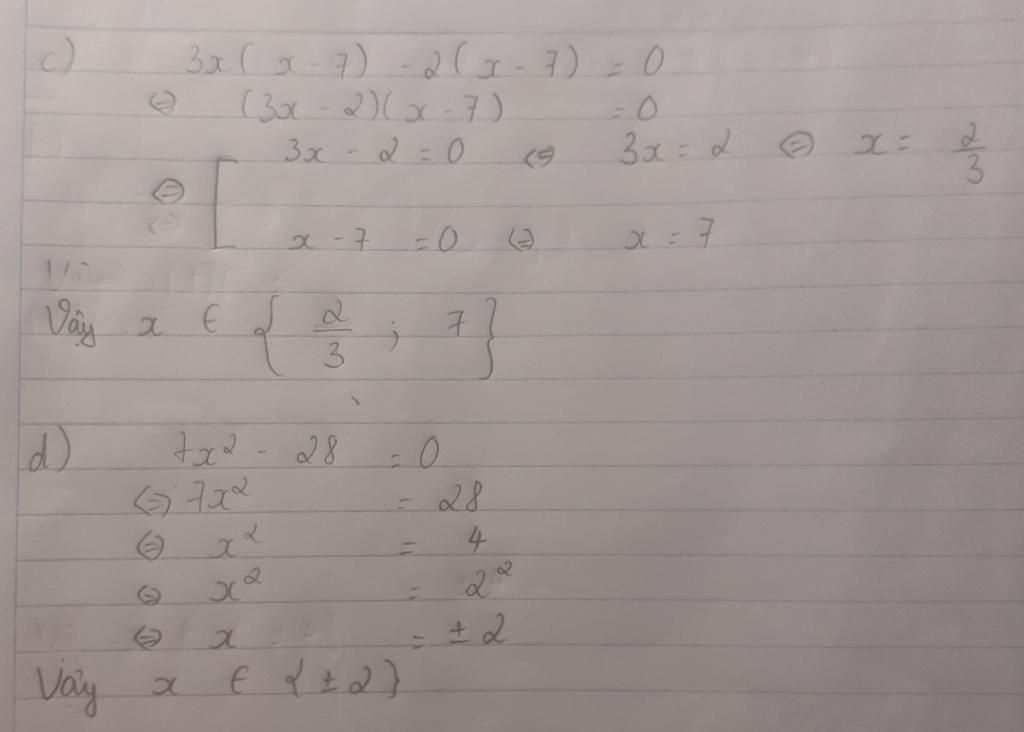 c) 3x(x-7) -2(x-7) = 0
⇔ (3x-2)(x-7) = 0
⇔ [ 3x - 2 = 0 ⇔ 3x = 2 ⇔ x = 2/3
x - 7 = 0 ⇔ x = 7
Vậy x ∈ { 2/3 ; 7 }
d) 7x² - 28 = 0
⇔ 7x² = 28
⇔ x² = 4
⇔ x² = 2²
⇔ x = ±2
Vậy x ∈ {±2}